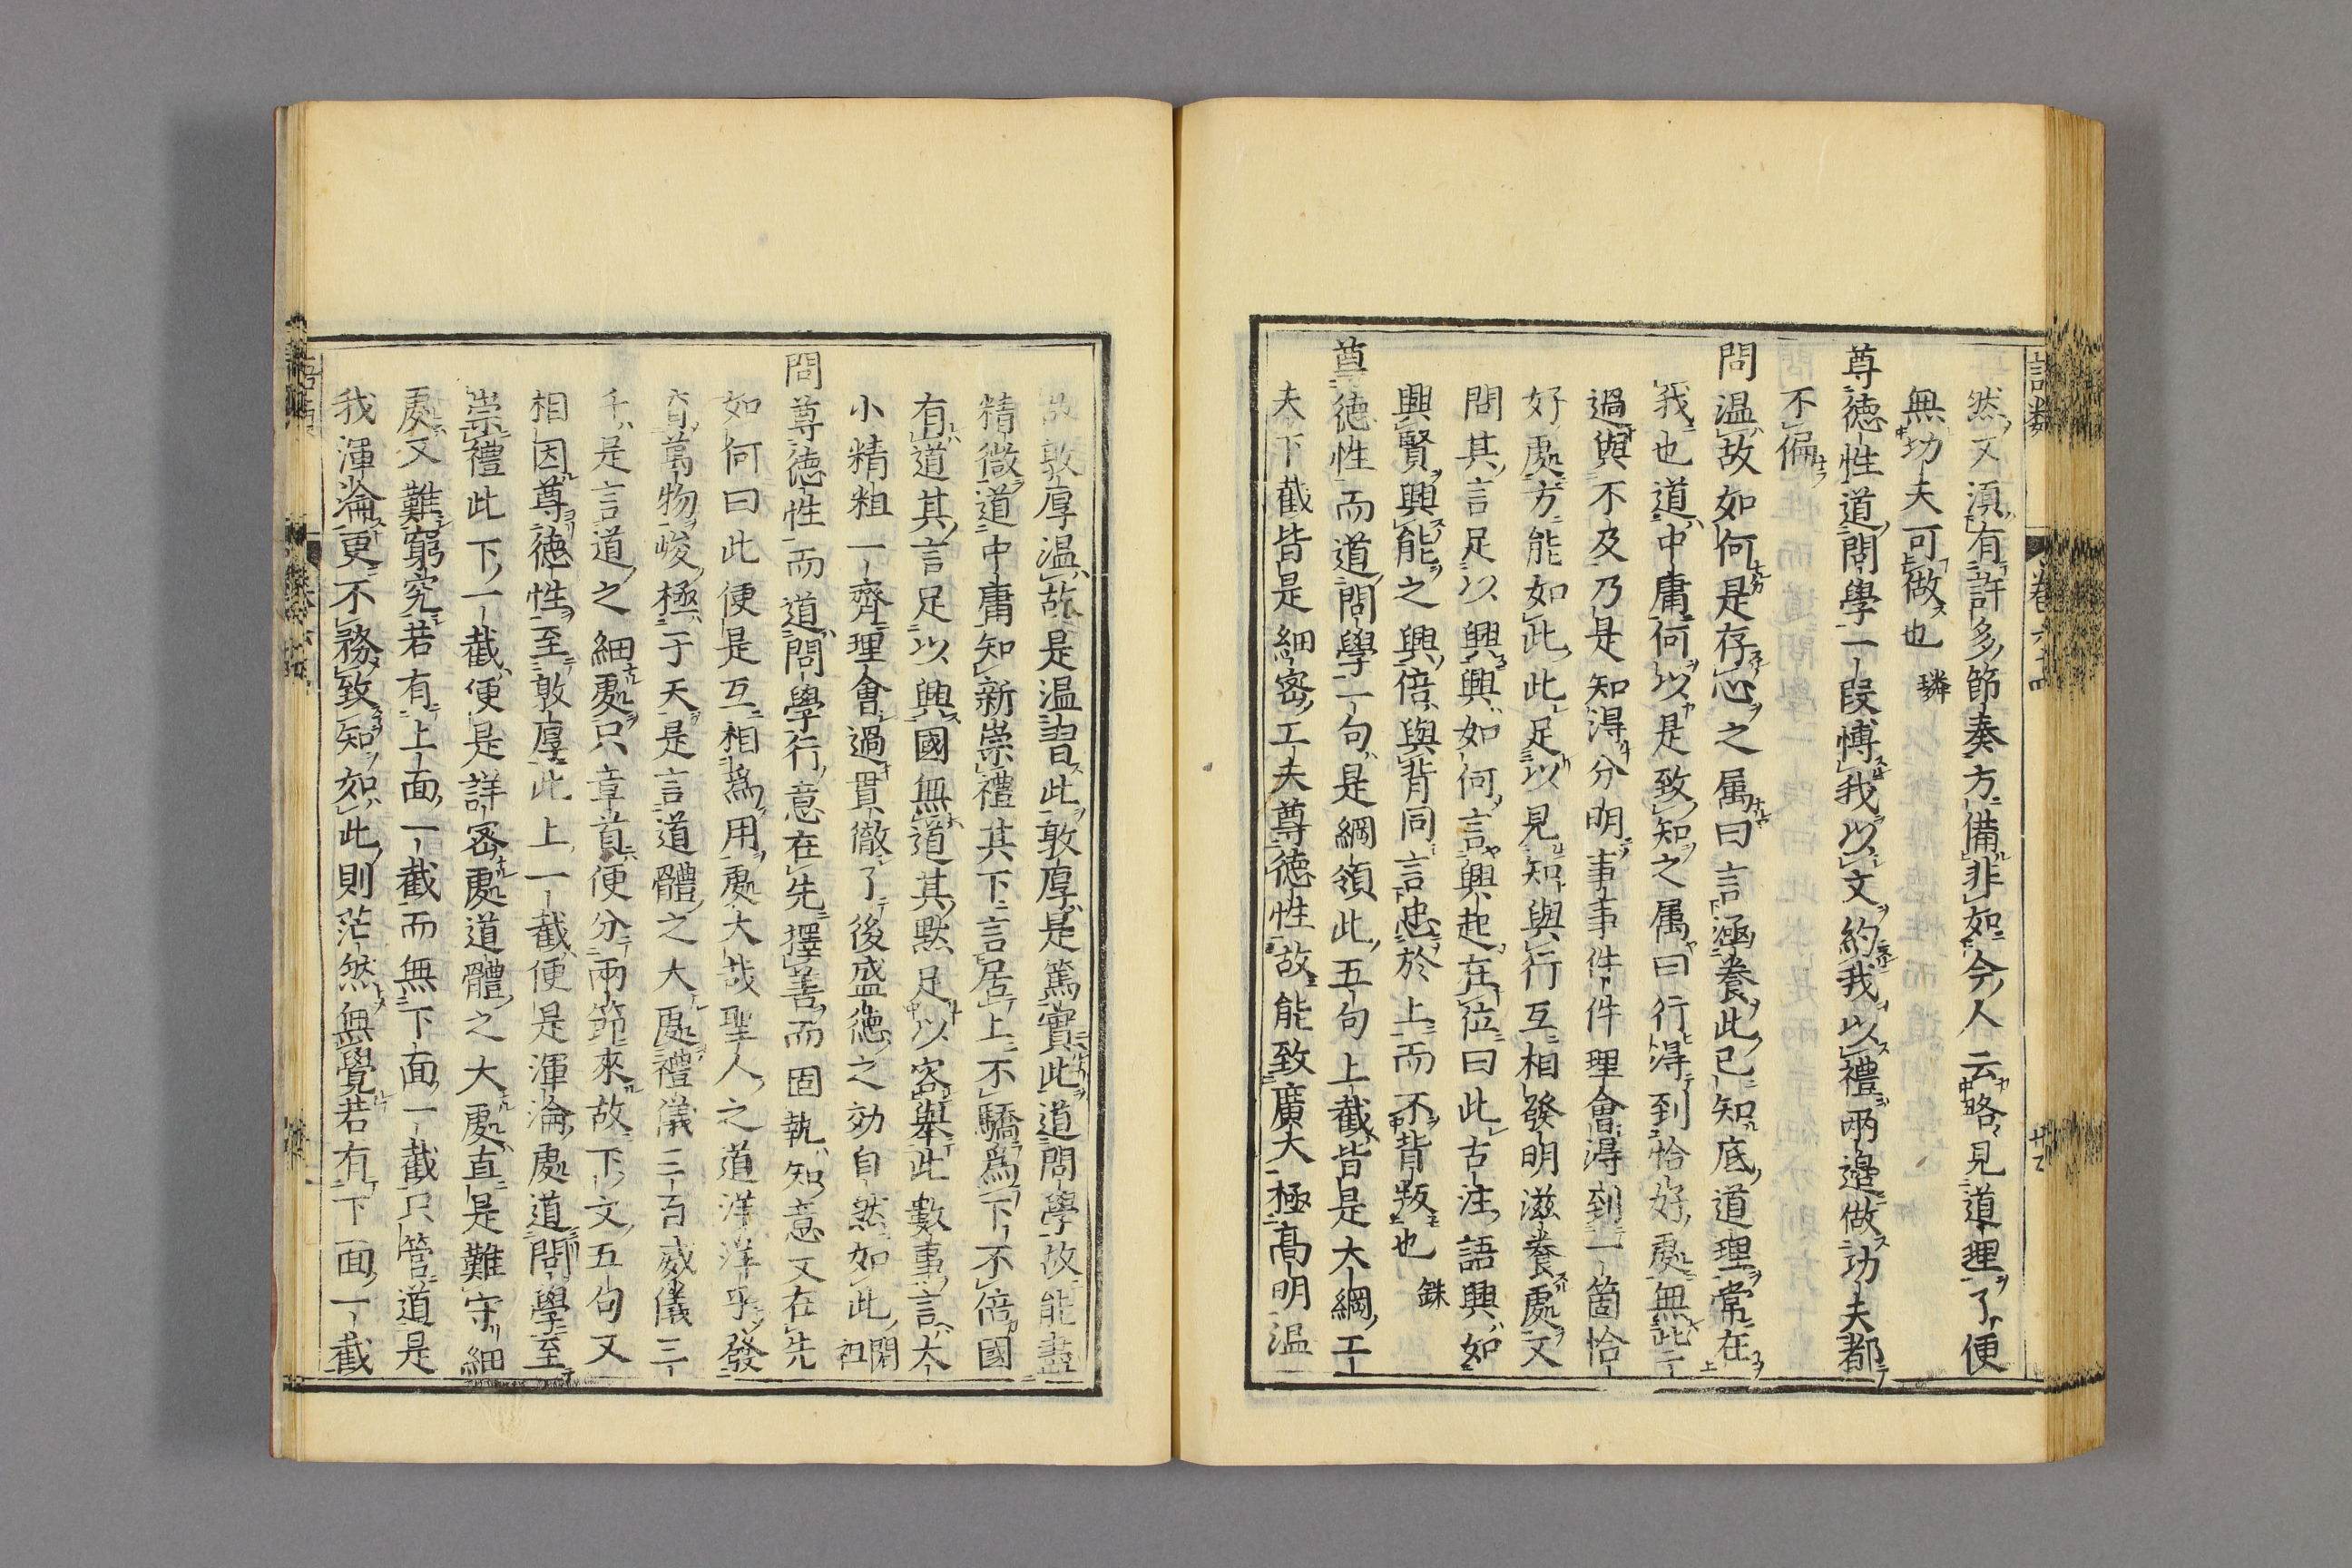 語類 卷六十四
然又須有許多節奏方備非如今人云略見道理了便
無功夫可做也 璘
尊德性道問學一段博我以文約我以禮兩邉做功夫都
不偏
問温故如何是存心之属曰言涵養此已知底道理常在
我也道中庸何以是致知之属曰行得到恰好處無
過與不及乃是知得分明事事件件理會得到一箇恰
好處方能如此此足以見知與行互相發明滋養處文
問其言足以興興如何言興起在位曰此古注語興如
興賢興能之興倍與背同言忠於上而不背叛也 銖
尊德性而道問學一句是綱領此五句上截皆是大綱工
夫下截皆是細密工夫尊德性故能致廣大極髙明温
故敦厚温故是温習此敦厚是篤實此道問學故能盡
精微道中庸知新崇禮其下言居上不驕爲下不倍國
有道其言足以興國無道其黙足以容舉此數事言大
小精粗一齊理會過貫徹了後盛德之効自然如此 閎祖
問尊德性而道問學行意在先擇善而固執知意又在先
如何曰此便是互相爲用處大哉聖人之道洋洋乎發
育萬物峻極于天是言道體之大處禮儀三百威儀三
千是言道之細處只章首便分兩節來故下文五句又
相因尊德性至敦厚此上一截便是渾淪處道問學至
崇禮此下一截便是詳密處道體之大處直是難守細
處又難窮究若有上面一截而無下面一截只管道是
我渾淪更不務致知如此則茫然無覺若有下面一截